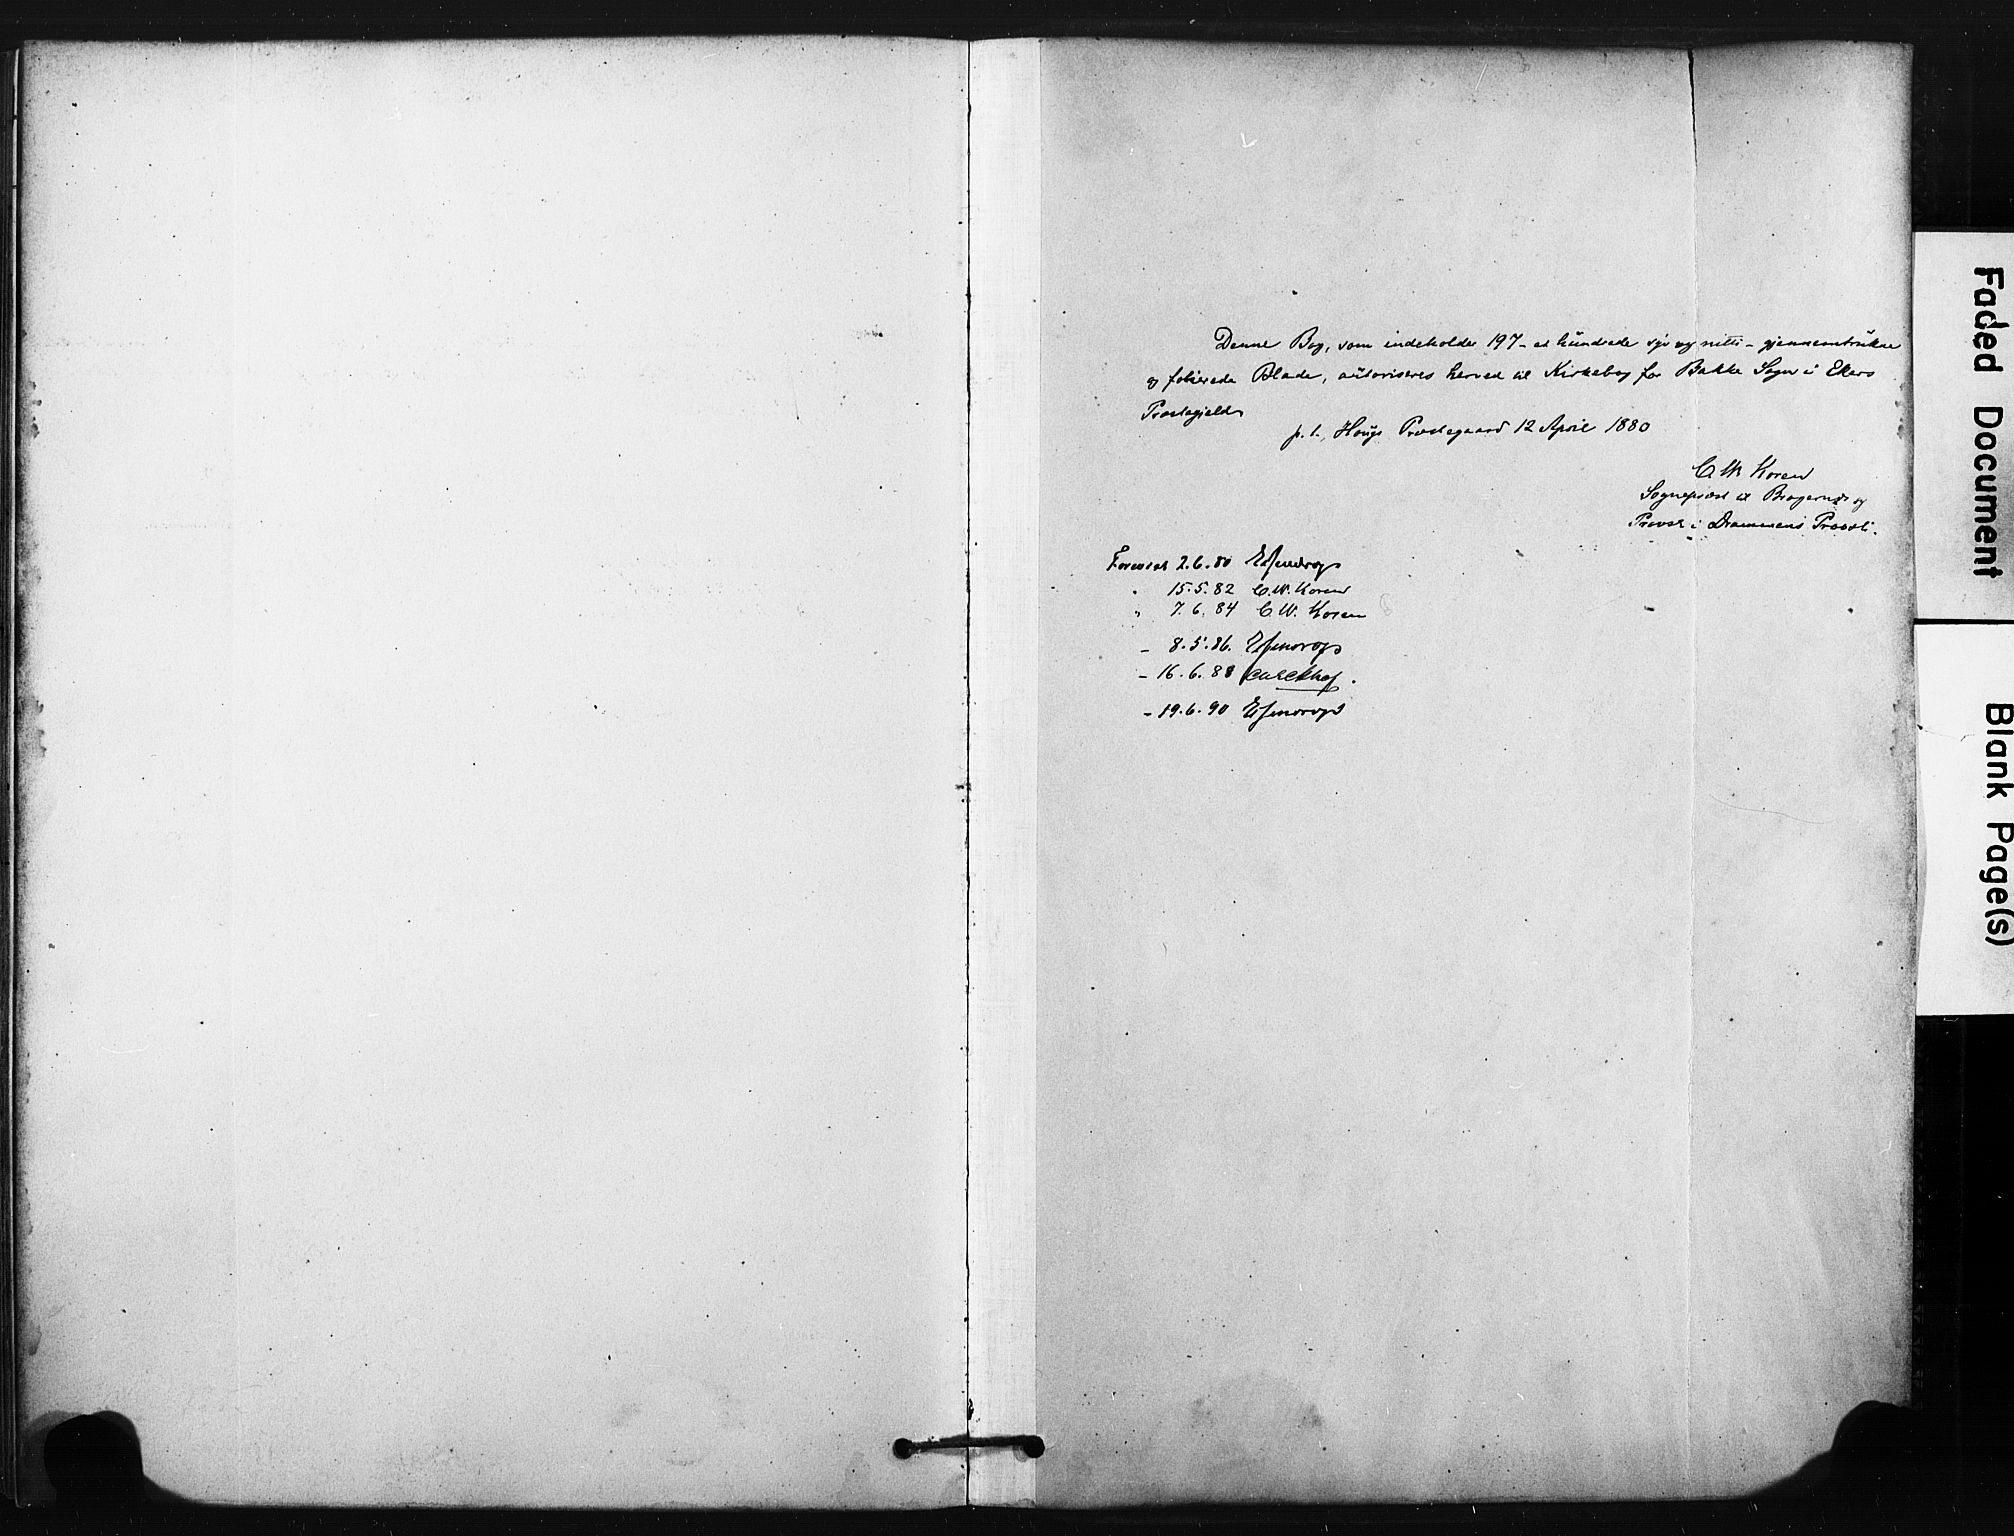 Denne Bog, som indeholder 197 - et hundrede syv og nitti - gjennemtrukne
og folierede Blade, autoriseres herved til Kirkebog for Bakke Sogn i Ekers
Præstegjeld
p. t. Hougs Præstegaard 12 April 1880
C W Koren
Sognepræst til Bragernæs og
Provst i Drammens Provsti.
Forevist 2.6.80 Essendrop
" 15.5.82 C. W. Koren
" 7.6.84 C. W. Koren
- 8.5.86. Essendrop
- 16.6.88
- 19.6.90 Essendrop
Faded Document
Blank Page(s)